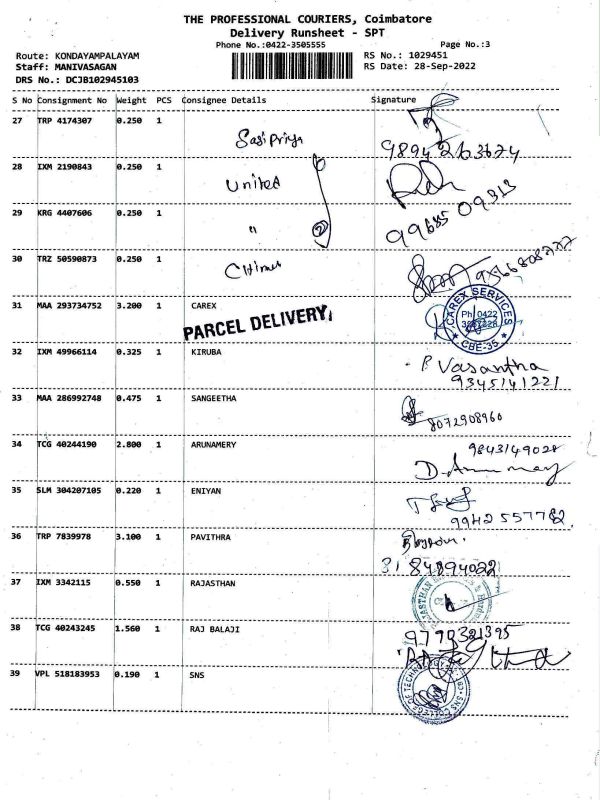 THE PROFESSIONAL COURIERS, Coimbatore
Delivery Runsheet - SPT
Phone No.:0422-3505555
Page No.:3
Route: KONDAYAMPALAYAM
RS No.: 1029451
Staff: MANIVASAGAN
RS Date: 28-Sep-2022
DRS No.: DCJB102945103
S No Consignment No Weight PCS Consignee Details Signature
27 TRP 4174307 0.250 1
Sasi Priya
9894263674
28 IXM 2190843 0.250 1
United
29 KRG 4407606 0.250 1
"
9968509313
30 TRZ 50590873 0.250 1
Chimes
31 MAA 293734752 3.200 1 CAREX
CAREX SERVICES
Ph 0422
CBE-35
PARCEL DELIVERY
32 IXM 49966114 0.325 1 KIRUBA
P Vasantha
9345141221
33 MAA 286992748 0.475 1 SANGEETHA
8072908960
34 TCG 40244190 2.800 1 ARUNAMERY
9843149028
35 SLM 304207105 0.220 1 ENIYAN
9942557782
36 TRP 7839978 3.100 1 PAVITHRA
37 IXM 3342115 0.550 1 RAJASTHAN
38 TCG 40243245 1.560 1 RAJ BALAJI
39 VPL 518183953 0.190 1 SNS